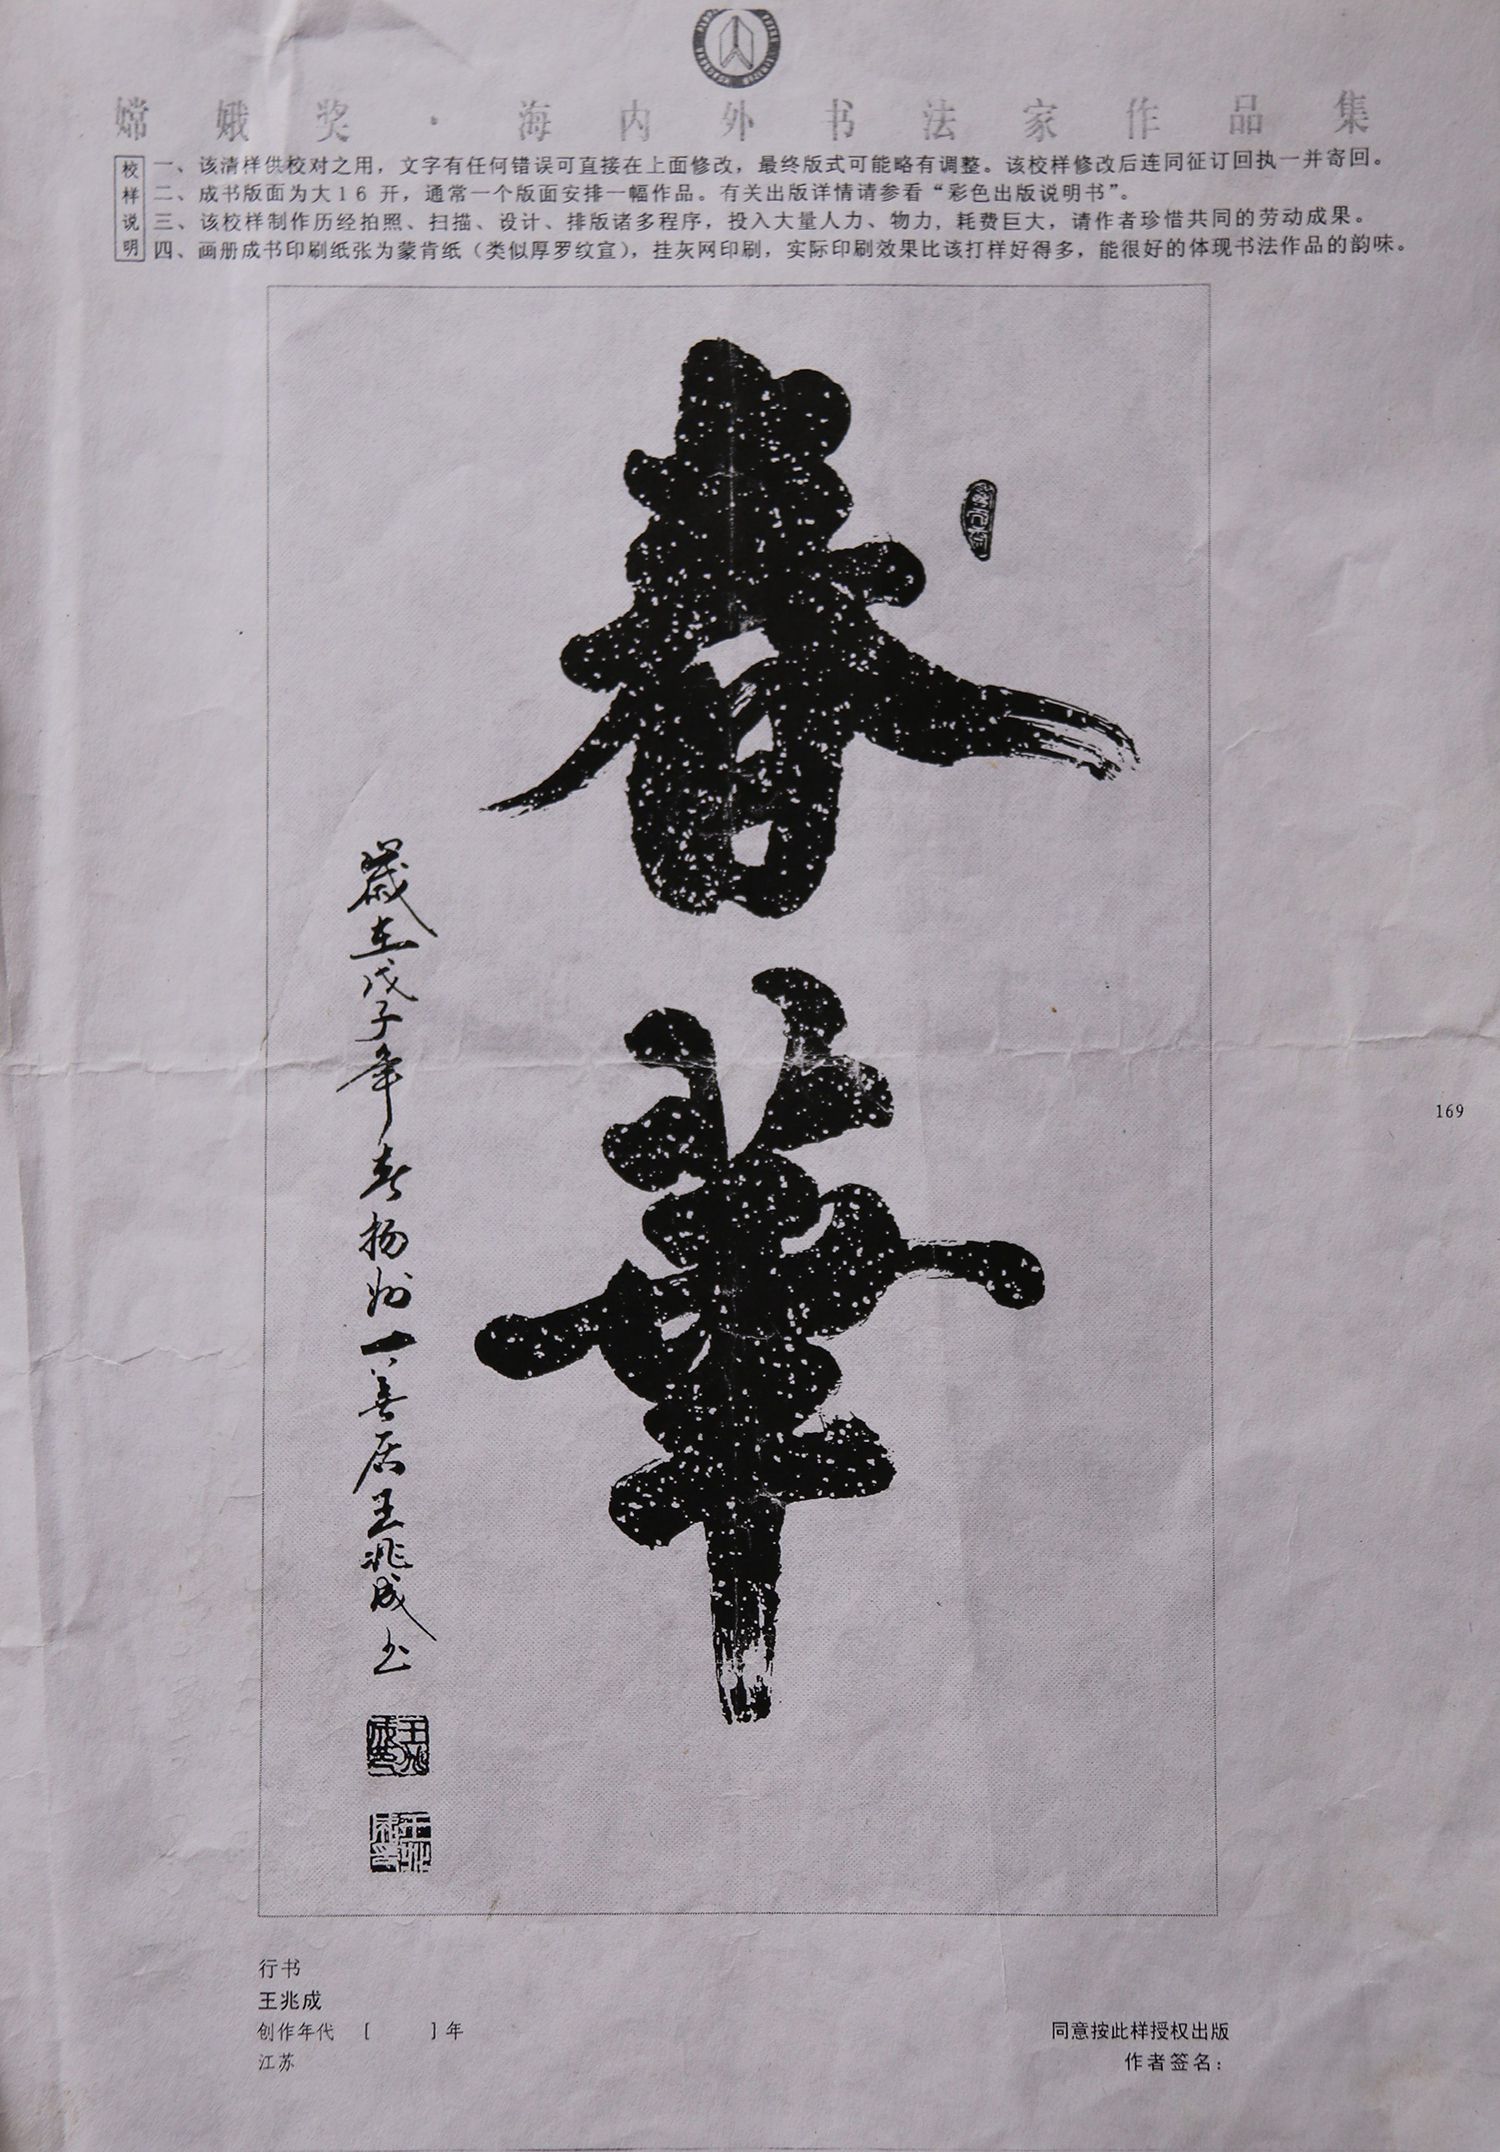 嫦娥奖·海内外书法家作品集
校样说明
一、该清样供校对之用，文字有任何错误可直接在上面修改，最终版式可能略有调整。该校样修改后连同征订回执一并寄回。
二、成书版面为大16 开，通常一个版面安排一幅作品。有关出版详情请参看“彩色出版说明书”。
三、该校样制作历经拍照、扫描、设计、排版诸多程序，投入大量人力、物力，耗费巨大，请作者珍惜共同的劳动成果。
四、画册成书印刷纸张为蒙肯纸（类似厚罗纹宣），挂灰网印刷，实际印刷效果比该打样好得多，能很好的体现书法作品的韵味。
春華
歲在戊子年春扬州一善居王兆成书
169
行书
王兆成
创作年代 [ ]年
江苏
同意按此样授权出版
作者签名：